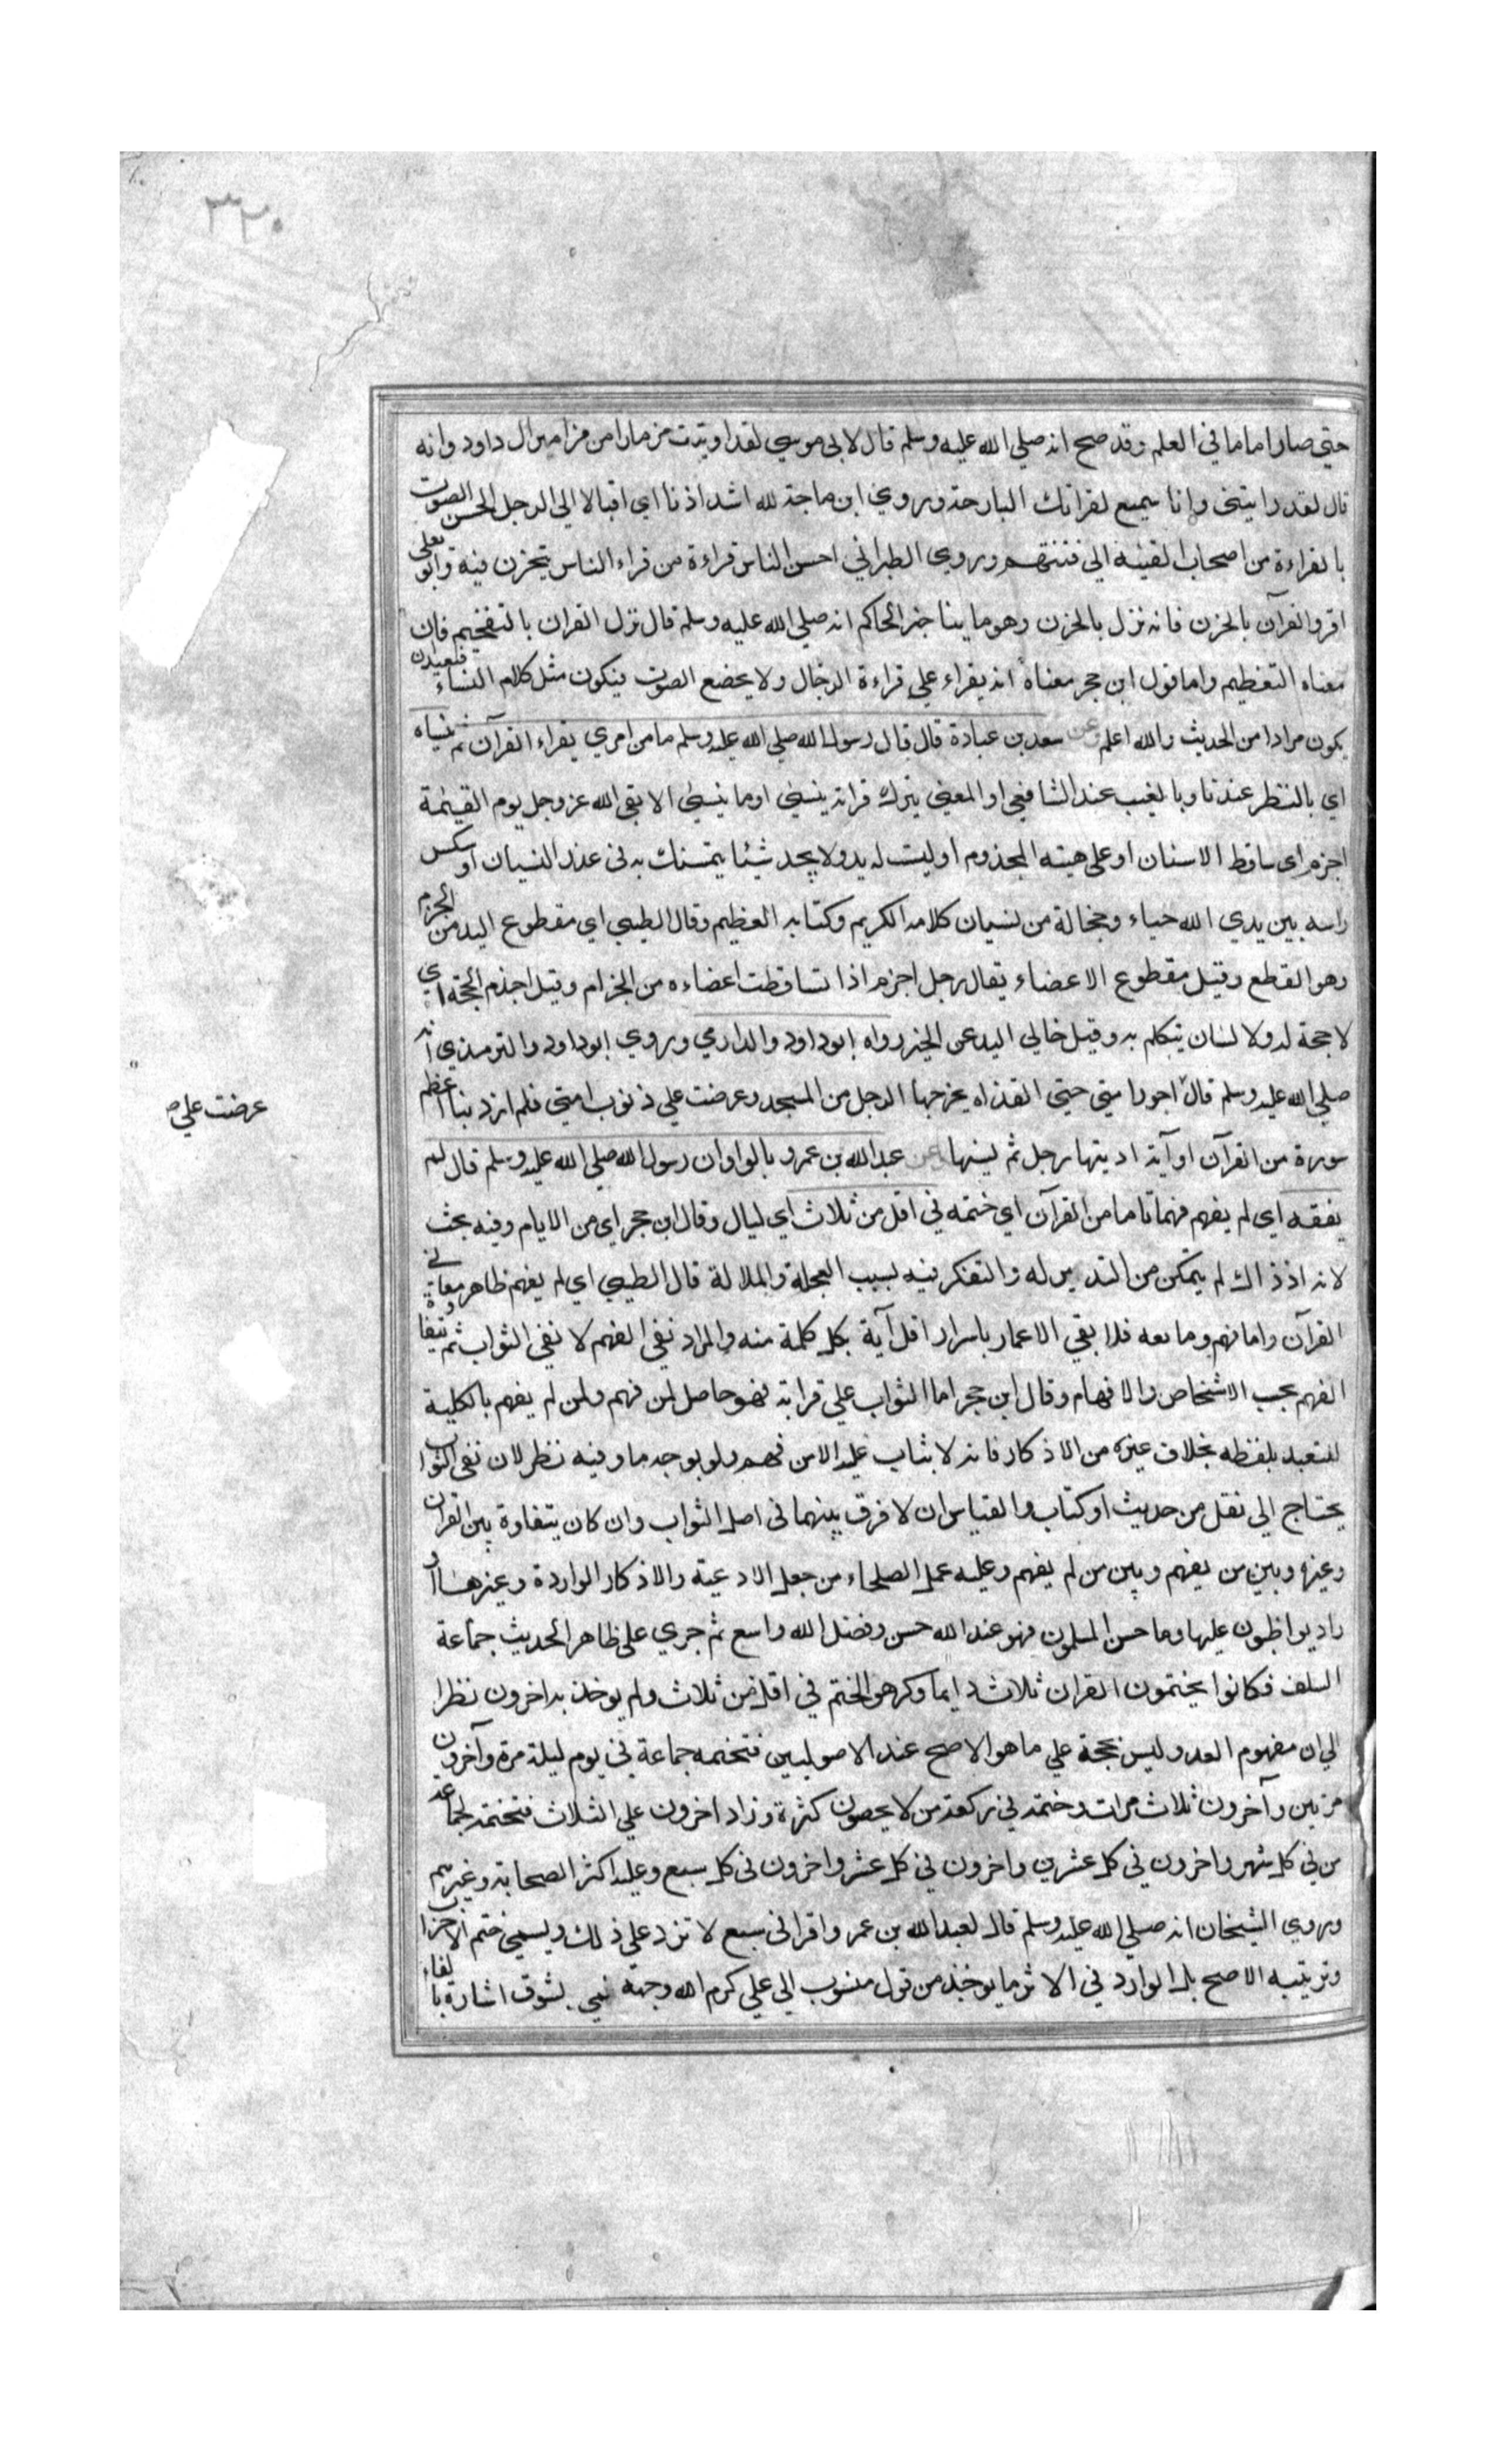 ٣٢٠
حتي صار اماما في العلم وقد صح انه صلي الله عليه وسلم قال لابي موسي لقد اوتيت مزمارا من مزامير ال داود وانه
قال لقد رايتني وانا سمع لقرائتك البارحة وروي ابن ماجة لله اشد اذنا اي اقبالا الي الرجل الحسن الصوت
بالقراءة من اصحاب القينة الي قينتهم وروي الطبراني احسن الناس قراءة من قراء الناس يتحزن فيه وابو يعلي
اقروا القرآن بالحزن فانه نزل بالحزن وهو ما ينا خبر الحاكم انه صلي الله عليه وسلم قال نزل القران بالتفخيم فان
معناه التعظيم واما قول ابن حجر معناه انه يقراء علي قراءة الرجال ولا يخضع الصوت فيكون مثل كلام النساء فبعيد ان
يكون مرادا من الحديث والله اعلم وعن سعد بن عبادة قال قال رسول الله صلي الله عليه وسلم ما من امري يقراء القرآن ثم ينساه
اي بالنظر عندنا وبالغيب عند الشافعي او المعني يترك قراته ينسي او ما ينسي الا بقي الله عز وجل يوم القيمة
اجزم اي ساقط الاسنان او علي هيئة المجذوم او ليست له يد ولا يجد شيئا يتمسك به في عذر النسيان او ينكس
راسه بين يدي الله حياء وخجالة من نسيان كلامه الكريم وكتابه العظيم وقال الطيبي اي مقطوع اليد من الجزم
وهو القطع وقيل مقطوع الاعضاء يقال رجل اجزم اذا تساقطت اعضاءه من الجزام وقيل اجذم الحجة اي
لا حجة له ولا لسان يتكلم به وقيل خالي اليد عن الخير رواه ابوداود والدارمي وروي ابوداود والترمذي انه
صلي الله عليه وسلم قال اجور امتي حتي القذاه يخرجها الرجل من المسجد وعرضت علي ذنوب امتي فلم ار ذنبا اعظم
عرضت علي ص
سورة من القرآن او آية اديتها رجل ثم نسيها وعن عبد الله بن عمرو بالواو ان رسول الله صلي الله عليه وسلم قال لم
يفقه اي لم يفهم فهما تاما من القرآن اي ختمه في اقل من ثلاث اي ليال وقال ابن حجر اي من الايام وفيه بحث
لانه اذ ذاك لم يتمكن من التدبر له والتفكر فيه بسبب العجلة والملالة قال الطيبي اي لم يفهم ظاهر معاني
القرآن واما فهم وما معه فلا بقي الاعمار باسرار اقل آية بكل كلمة منه والمراد نفي الفهم لا نفي الثواب ثم يتفاوة
الفهم بحسب الاشخاص والافهام وقال ابن حجر اما الثواب علي قراته فهو حاصل لمن فهم ولمن لم يفهم بالكلية
للتعبد بلفظه بخلاف غيره من الاذكار فانه لا يثاب عليه الا من فهم ولو بوجه ما وفيه نظر لان نفي الثواب
يحتاج الي نقل من حديث او كتاب والقياس ان لا فرق بينهما في اصل الثواب وان كان يتفاوة بين القران
وغيره وبين من يفهم وبين من لم يفهم وعليه عمل الصلحاء من جعل الادعية والاذكار الواردة وغيرها او
راد يواظبون عليها وما حسن المسلمون فهو عند الله حسن وفضل الله واسع ثم جري علي ظاهر الحديث جماعة
السلف فكانوا يختمون القران ثلاث دايما وكرهوا الختم في اقل من ثلاث ولم يوخذ به اخرون نظرا
الي ان مفهوم العدد ليس بحجة علي ما هو الاصح عند الاصوليين فتختمه جماعة في يوم ليلة مرة وآخرون
مرتين وآخرون ثلاث مرات وختمه في ركعة من لا يحصون كثرة وزاد اخرون علي الثلاث فتختمه جماعة
من في كل شهر واخرون في كل عشرين واخرون في كل عشر واخرون في كل سبع وعليه اكثر الصحابة وغيرهم
وروي الشيخان انه صلي الله عليه وسلم قال لعبد الله بن عمرو اقرا في سبع لا تزد علي ذلك ويسمي ختم الاحزاب
وترتيبه الاصح بل الوارد في الاثر ما يوخذ من قول منسوب الي علي كرم الله وجهه فمي بشوق اشارة بالفاء